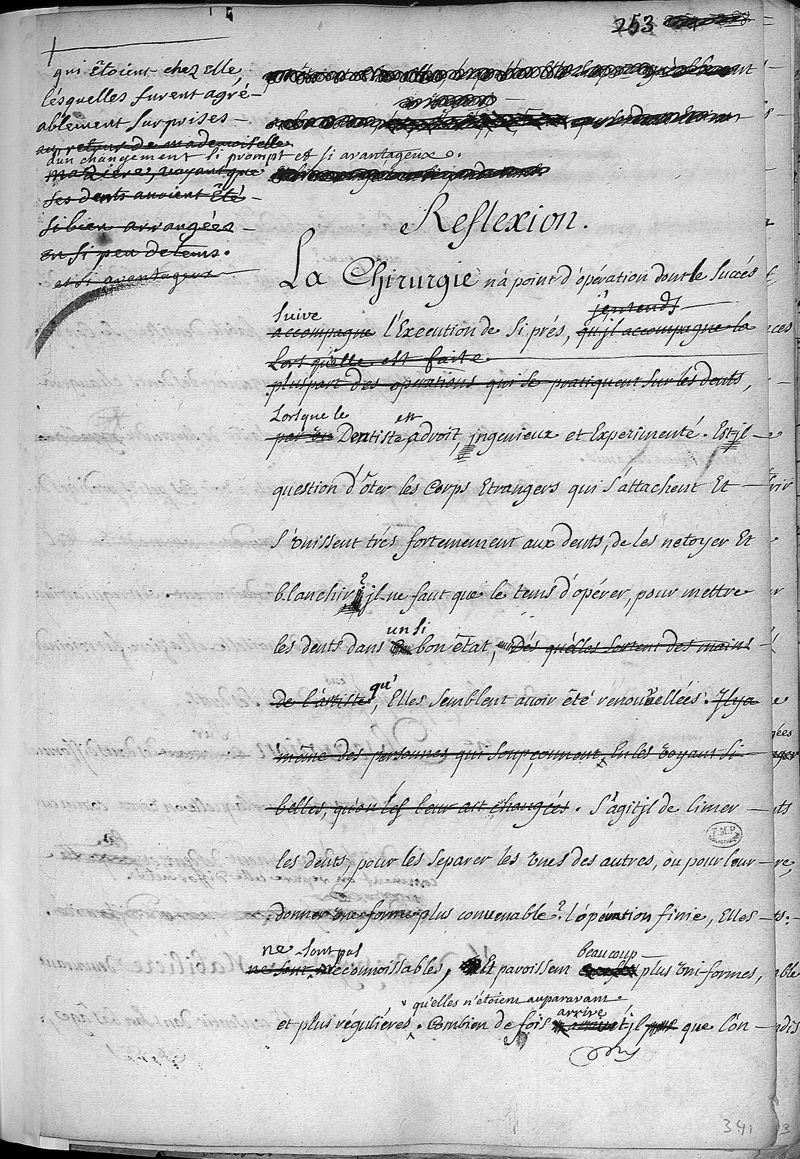 253
qui êtoient chez elle,
lésquelles furent agré-
ablement surprises
au retour de mademoiselle
d'un changement si prompt et si avantageux.
voyant que
ses dents avoient êté
si bien arrangées
en si peu de tems.
et si avantageux
Reflexion.
La Chirurgie n'à point d'opération dont le Succés
suive j'entends
accompagne l'Execution de si prés, qu'jl accompagne la
Lors qu'elle est faite
pluspart des operations qui se pratiquent sur les dents,
Lorsque le est
par un Dentiste, adroit, jngenieux et Experimenté. Est jl
question d'ôter les Corps Etrangers qui s'attachent Et
s'vnissent trés fortemement aux dents, de les netoyer Et
blanchir? jl ne faut que le tems d'opérer, pour mettre
un si
les dents dans bon êtat, Dés quélles sortent des mains
qu'
de l'artiste, Elles semblent avoir êté renouvellées. Jl ya
même des personnes qui soupçonnent, En les voyant si
belles, qu'on les leur ait changées. S'agit jl de limer
les dents, pour les séparer les vnes des autres, ou pour leur
donner vne forme plus convenable? l'opération finie, Elles
ne sont pas beaucoup
ne sont reconnoissables, Et paroissent plus vni formes,
qu'elles n'étoient auparavant
et plus régulières. Combien de fois arrive t'jl que l'on
F.M.P.
341